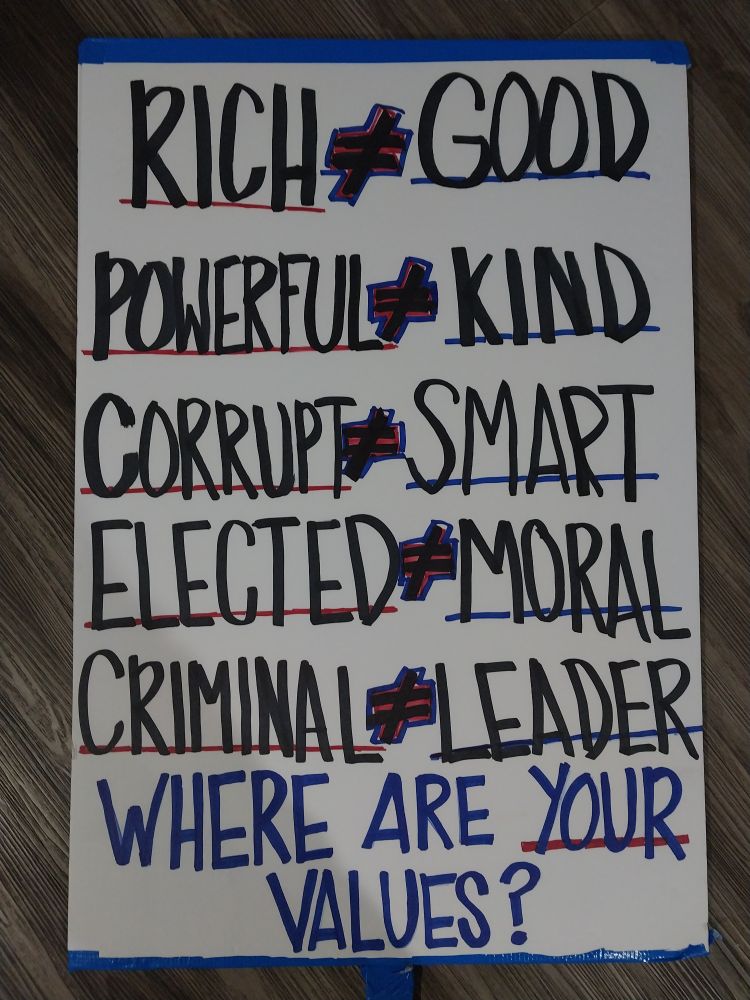 RICH ≠ GOOD
POWERFUL ≠ KIND
CORRUPT ≠ SMART
ELECTED ≠ MORAL
CRIMINAL ≠ LEADER
WHERE ARE YOUR
VALUES?